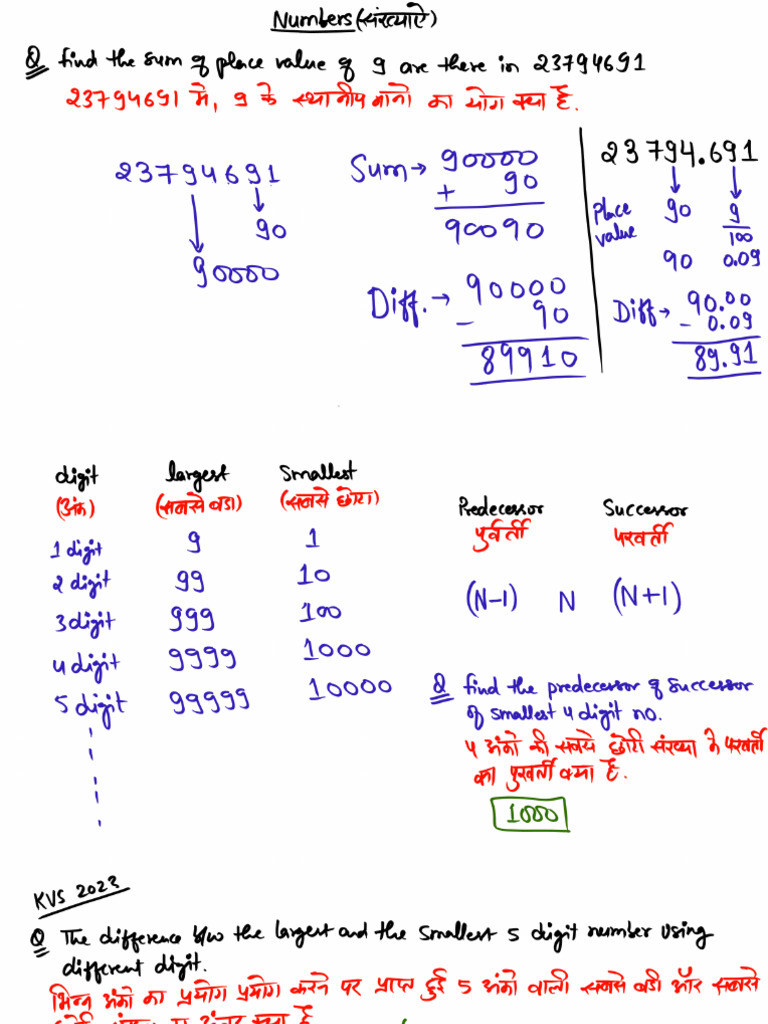 Numbers (संख्याऐ)
Q find the sum of place value of 9 are there in 23794691
23794691 मे, 9 के स्थानीय मानो का योग क्या है.
23794691
90
90000
Sum → 90000
+ 90
90090
Diff. → 90000
- 90
89910
23794.691
Place value 90 9/100
90 0.09
Diff → 90.00
- 0.09
89.91
digit largest smallest
(अंक) (सबसे बडा) (सबसे छोटा)
1 digit 9 1
2 digit 99 10
3 digit 999 100
4 digit 9999 1000
5 digit 99999 10000
Predecessor Successor
पुर्वर्ती परवर्ती
(N-1) N (N+1)
Q find the predecessor of successor
of smallest 4 digit no.
4 अंको की सबसे छोटी संख्या के परवर्ती
का पुरवर्ती क्या है.
1000
KVS 2023
Q The difference b/w the largest and the smallest 5 digit number using
different digit.
भिन्न अंको का प्रयोग प्रयोग करने पर प्राप्त हुई 5 अंको वाली सबसे बडी और सबसे